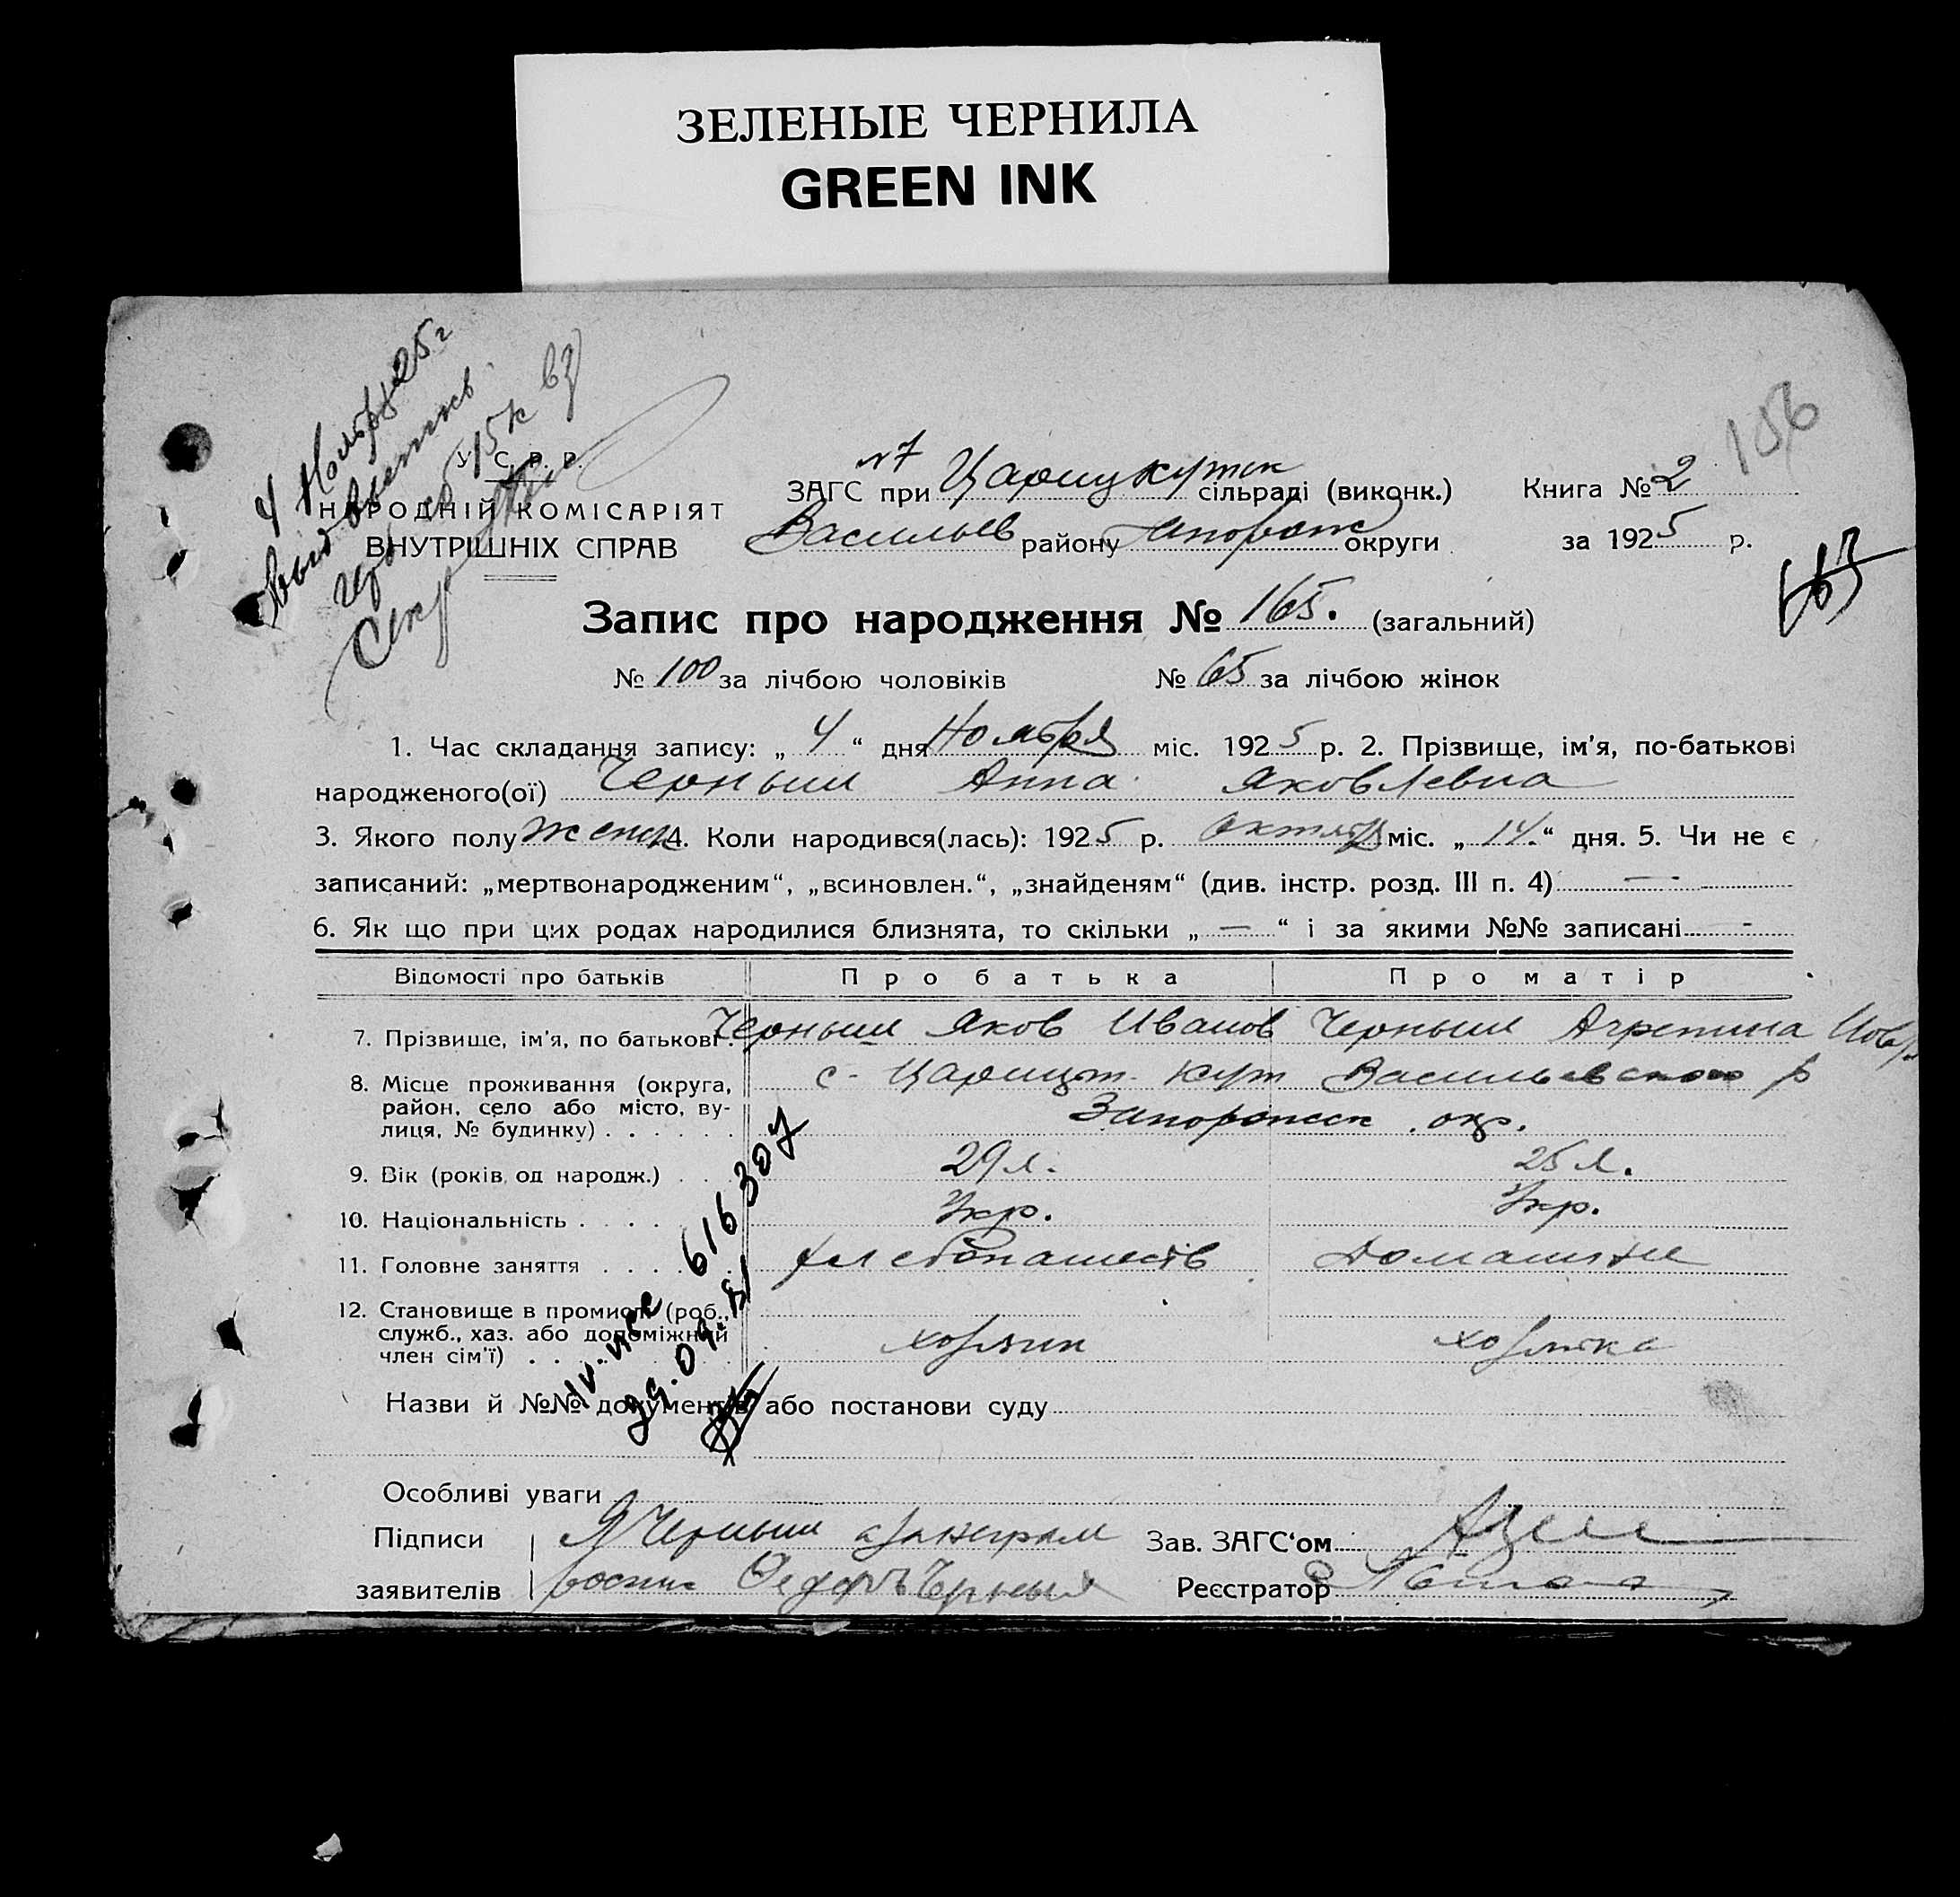 ЗЕЛЕНЫЕ ЧЕРНИЛА
GREEN INK
4 Ноября 25 г
У. С. Р. Р.
НАРОДНІЙ КОМІСАРІЯТ
ВНУТРІШНІХ СПРАВ
№7
ЗАГС при Царицкутск сільраді (виконк.)
Васильев району Запорож округи
Книга № 2
за 1925 р.
156
Запис про народження № 165. (загальний)
№ 100 за лічбою чоловіків № 65 за лічбою жінок
1. Час складання запису: „ 4 “ дня Ноября міс. 1925 р. 2. Прізвище, ім'я, по-батькові
народженого(ої) Черныш Анна Яковлевна
3. Якого полу женск 4. Коли народився(лась): 1925 р. октября міс. „ 14. “ дня. 5. Чи не є
записаний: „мертвонародженим“, „всиновлен.“, „знайденям“ (див. інстр. розд. III п. 4) —
6. Як що при цих родах народилися близнята, то скільки „ — “ і за якими №№ записані -
Відомості про батьків Про батька Про матір
7. Прізвище, ім'я, по батькові. Черныш Яков Иванов Черныш Агрепина
8. Місце проживання (округа, с. Царицын. Кут Васильевского р
район, село або місто, ву- Запорожск. окр.
лиця, № будинку)
9. Вік (років од народж.) 29 л. 25 л.
10. Національність Укр. Укр.
11. Головне заняття хлебопашеств Домашняе
12. Становище в промислі (роб.,
служб., хаз. або допоміжний хозяин хозяйка
член сім'ї)
616307
Назви й №№ документів або постанови суду
Особливі уваги
Підписи Я Черныш Зав. ЗАГС‘ом
заявителів Федоръ Черныш Реєстратор